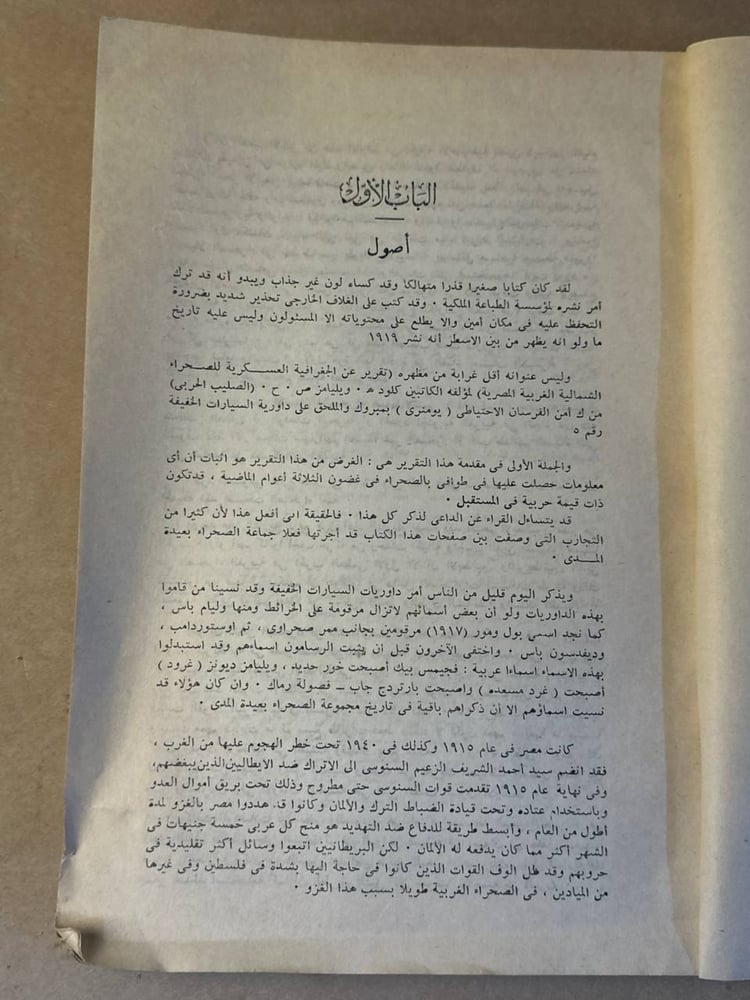 الباب الأول
أصول
لقد كان كتابا صغيرا قذرا متهالكا وقد كساه لون غير جذاب ويبدو أنه قد ترك
أمر نشره لمؤسسة الطباعة الملكية ٠ وقد كتب على الغلاف الخارجى تحذير شديد بضرورة
التحفظ عليه فى مكان أمين والا يطلع على محتوياته الا المسئولون وليس عليه تاريخ
ما ولو انه يظهر من بين الاسطر أنه نشر ١٩١٩
وليس عنوانه أقل غرابة من مظهره (تقرير عن الجغرافية العسكرية للصحراء
الشمالية الغربية المصرية) لمؤلفه الكاتبين كلود ھ ٠ ويليامز ص ٠ ح ٠ (الصليب الحربى)
من ك أمن الفرسان الاحتياطى ( يومنرى ) بمبروك والملحق على داورية السيارات الخفيفة
رقم ٥
والجملة الأولى فى مقدمة هذا التقرير هى : الغرض من هذا التقرير هو اثبات أن أى
معلومات حصلت عليها فى طوافى بالصحراء فى غضون الثلاثة أعوام الماضية ، قدتكون
ذات قيمة حربية فى المستقبل ٠
قد يتساءل القراء عن الداعى لذكر كل هذا ٠ فالحقيقة انى أفعل هذا لأن كثيرا من
التجارب التى وصفت بين صفحات هذا الكتاب قد أجرتها فعلا جماعة الصحراء بعيدة
المدى ٠
ويذكر اليوم قليل من الناس أمر داوريات السيارات الخفيفة وقد نسينا من قاموا
بهذه الداوريات ولو أن بعض أسمائهم لاتزال مرقومة على الخرائط ومنها وليام باس ،
كما نجد اسمى بول ومور (١٩١٧) مرقومين بجانب ممر صحراوى ، ثم اوستوردامب ،
وديفدسون باس ٠ واختفى الآخرون قبل أن يثبت الرسامون اسماءهم وقد استبدلوا
بهذه الاسماء اسماءا عربية : فجيمس بيك أصبحت خور حديد ، ويليامز ديونز ( غرود )
أصبحت ( غرد مسعده ) واصبحت بارتردج جاب ــ فصولة رماك ٠ وان كان هؤلاء قد
نسيت اسماؤهم الا أن ذكراهم باقية فى تاريخ مجموعة الصحراء بعيدة المدى ٠
كانت مصر فى عام ١٩١٥ وكذلك فى ١٩٤٠ تحت خطر الهجوم عليها من الغرب ،
فقد انضم سيد أحمد الشريف الزعيم السنوسى الى الاتراك ضد الايطاليين الذين يبغضهم،
وفى نهاية عام ١٩١٥ تقدمت قوات السنوسى حتى مطروح وذلك تحت بريق أموال العدو
وباستخدام عتاده وتحت قيادة الضباط الترك والألمان وكانوا قد هددوا مصر بالغزو لمدة
أطول من العام ، وأبسط طريقة للدفاع ضد التهديد هو منح كل عربى خمسة جنيهات فى
الشهر أكثر مما كان يدفعه له الألمان ٠ لكن البريطانيين اتبعوا وسائل أكثر تقليدية فى
حروبهم وقد ظل الوف القوات الذين كانوا فى حاجة اليها بشدة فى فلسطين وفى غيرها
من الميادين ، فى الصحراء الغربية طويلا بسبب هذا الغزو ٠